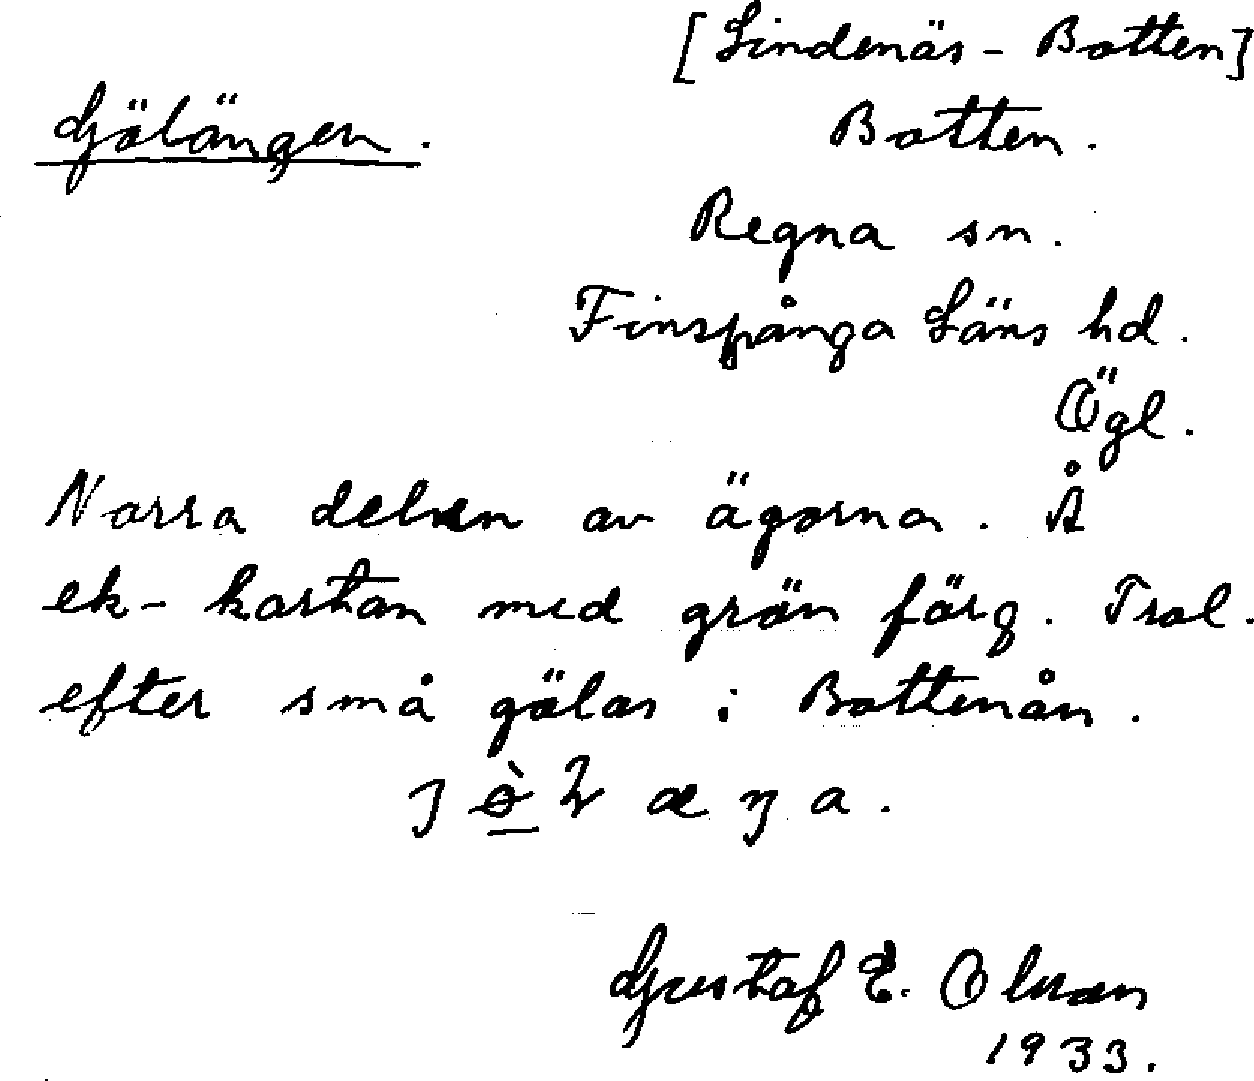 [Lindenäs - Botten]
Gölängen.
Botten.
Regna sn.
Finspånga Läns hd.
Ögl.
Norra delen av ägorna. Å
ek-kartan med grön färg. Trol.
efter små gölar i Bottenån.
Gustaf E. Olsson
1933.